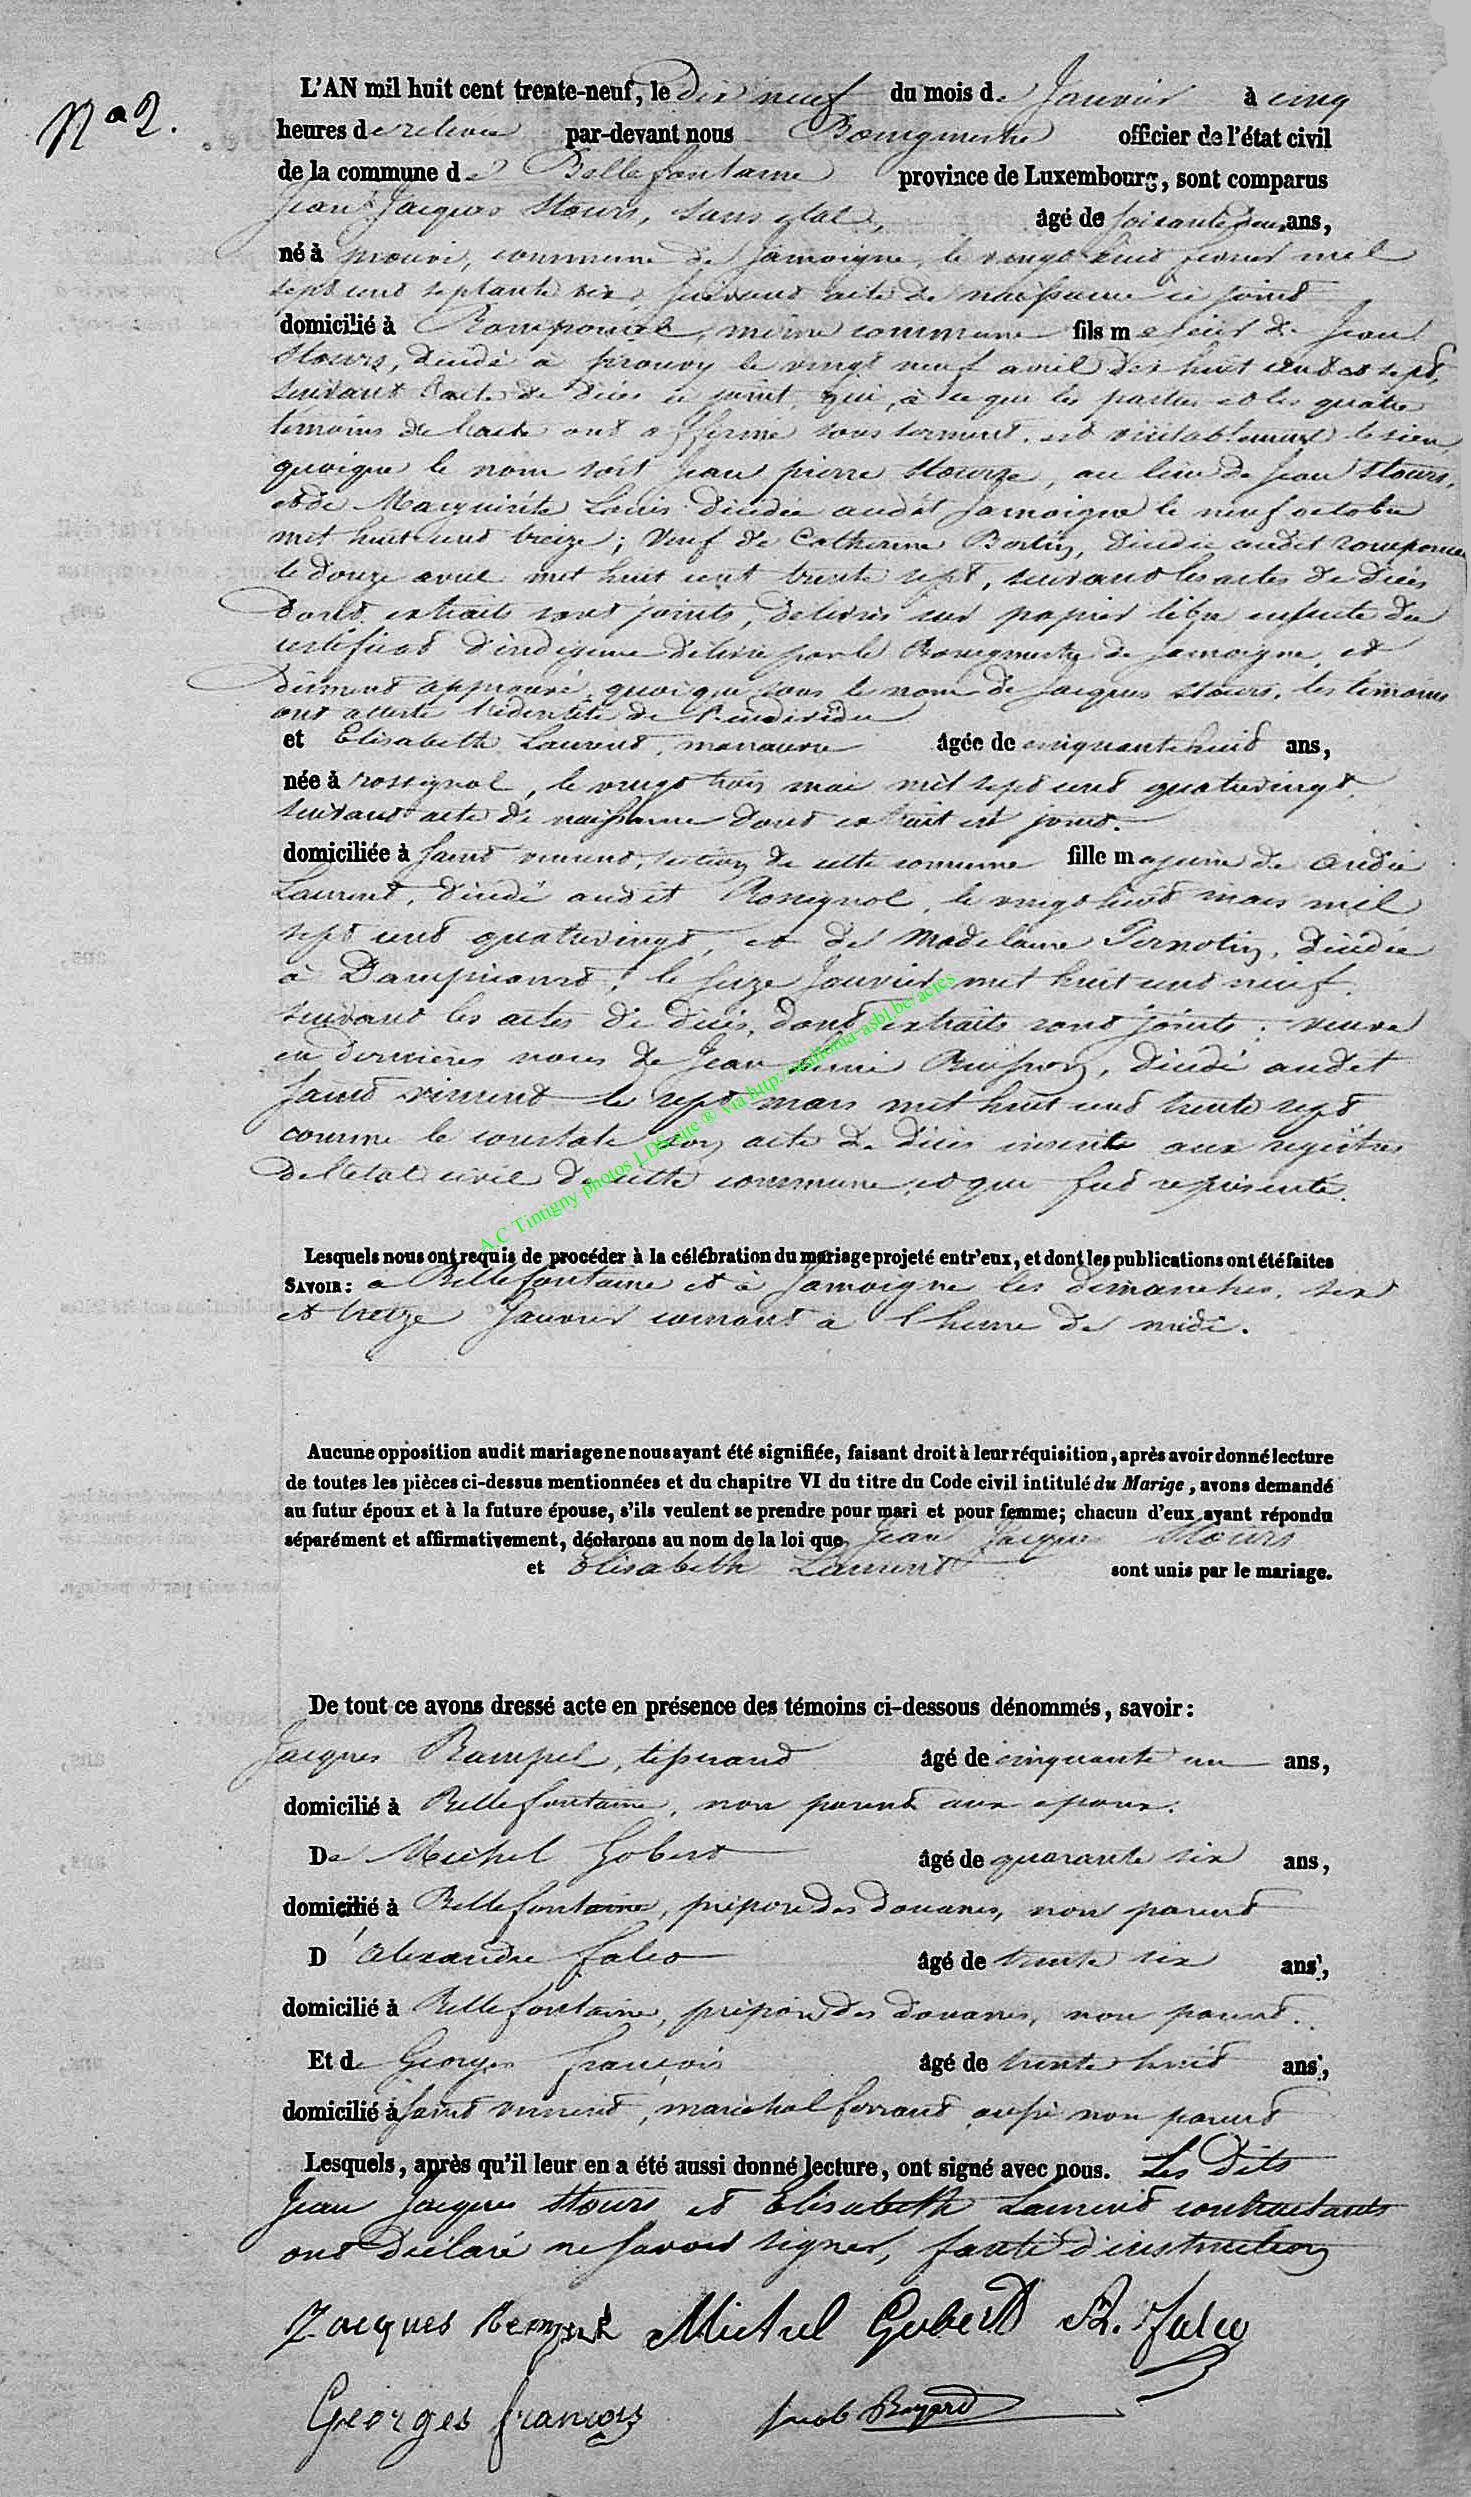 N° 2.
L'AN mil huit cent trente-neuf, le dix neuf du mois de Janvier à cinq
heures de relevée par-devant nous Bourgmestre officier de l'état civil
de la commune de Bellefontaine province de Luxembourg, sont comparus
Jean Jacques Stours, sans état, âgé de soixante deux ans,
né à prouvi, commune de Jamoigne, le vingt huit fevrier mil
sept cent septante six suivant acte de naissance ci joint
domicilié à Romponcel, même commune fils majeur de Jean
Stours, décédé à prouvy le vingt neuf avril dix huit cent sept,
suivant l'acte de décès ci joint, qui, à ce que les parties et les quatre
témoins de l'acte ont affermé sous serment, est véritablement le sien,
quoique le nom soit Jean pierre Stourze, au lieu de Jean Stours,
et de Marguérite Louis décédée audit Jamoigne le neuf octobre
mil huit cent treize; Veuf de Catherine Bertin, décédée audit romponcel
le douze avril mil huit cent trente sept, suivant les actes de décès
dont extraits sont joints, delivrés sur papier libre ensuite du
certificat d'indigence délivré par le Bourgmestre de Jamoigne, et
dûment approuvé, quoique sous le nom de Jacques Stours, les témoins
ont attesté l'identité de l'individu
et Elisabeth Laurent, manœuvre âgée de cinquante huit ans,
née à rossignol, le vingt trois mai mil sept cent quatrevingt,
suivant acte de naissance dont extrait est joint.
domiciliée à Saint vincent, section de cette commune fille majeure de André
Laurent, décédé audit Rossignol, le vingt huit mars mil
sept cent quatrevingt, et de Madelaine Pernotin, décédée
à Dampicourt, le seize Janvier mil huit cent neuf,
suivant les actes de décès, dont extraits sont joints; veuve
en dernières noces de Jean Buisson, décédé audit
Saint vincent le sept mars mil huit cent trente sept
comme le constate son acte de décès inscrit aux registres
de l'état civil de cette commune, et qui fut représenté.
A.C Tintigny photos LDS site ® via http://wallonia-asbl.be/actes
Lesquels nous ont requis de procéder à la célébration du mariage projeté entr'eux, et dont les publications ont été faites
SAVOIR: à Bellefontaine et à Jamoigne les dimanches, six
et treize Janvier courant à l'heure de midi.
Aucune opposition audit mariage ne nous ayant été signifiée, faisant droit à leur réquisition, après avoir donné lecture
de toutes les pièces ci-dessus mentionnées et du chapitre VI du titre du Code civil intitulé du Marige, avons demandé
au futur époux et à la future épouse, s'ils veulent se prendre pour mari et pour femme; chacun d'eux ayant répondu
séparément et affirmativement, déclarons au nom de la loi que Jean Jacques Stours
et Elisabeth Laurent sont unis par le mariage.
De tout ce avons dressé acte en présence des témoins ci-dessous dénommés, savoir:
Jacques Rampel, tisserand âgé de cinquante un ans,
domicilié à Bellefontaine, non parent aux epoux.
De Michel Gobert âgé de quarante six ans,
domicilié à Bellefontaine, préposé des douanes, non parent
D'Alexandre Falco âgé de trente six ans,
domicilié à Bellefontaine, préposé des douanes, non parent.
Et de Georges François âgé de trente huit ans,
domicilié à Saint vincent, maréchal ferrant aussi non parent
Lesquels, après qu'il leur en a été aussi donné lecture, ont signé avec nous. Les dits
Jean Jacques Stours et Elisabeth Laurent contractants
ont déclaré ne savoir signer, faute d'instruction
Jacques Rempel Michel Gobert A. Falco
Georges françois Jacob Bayard